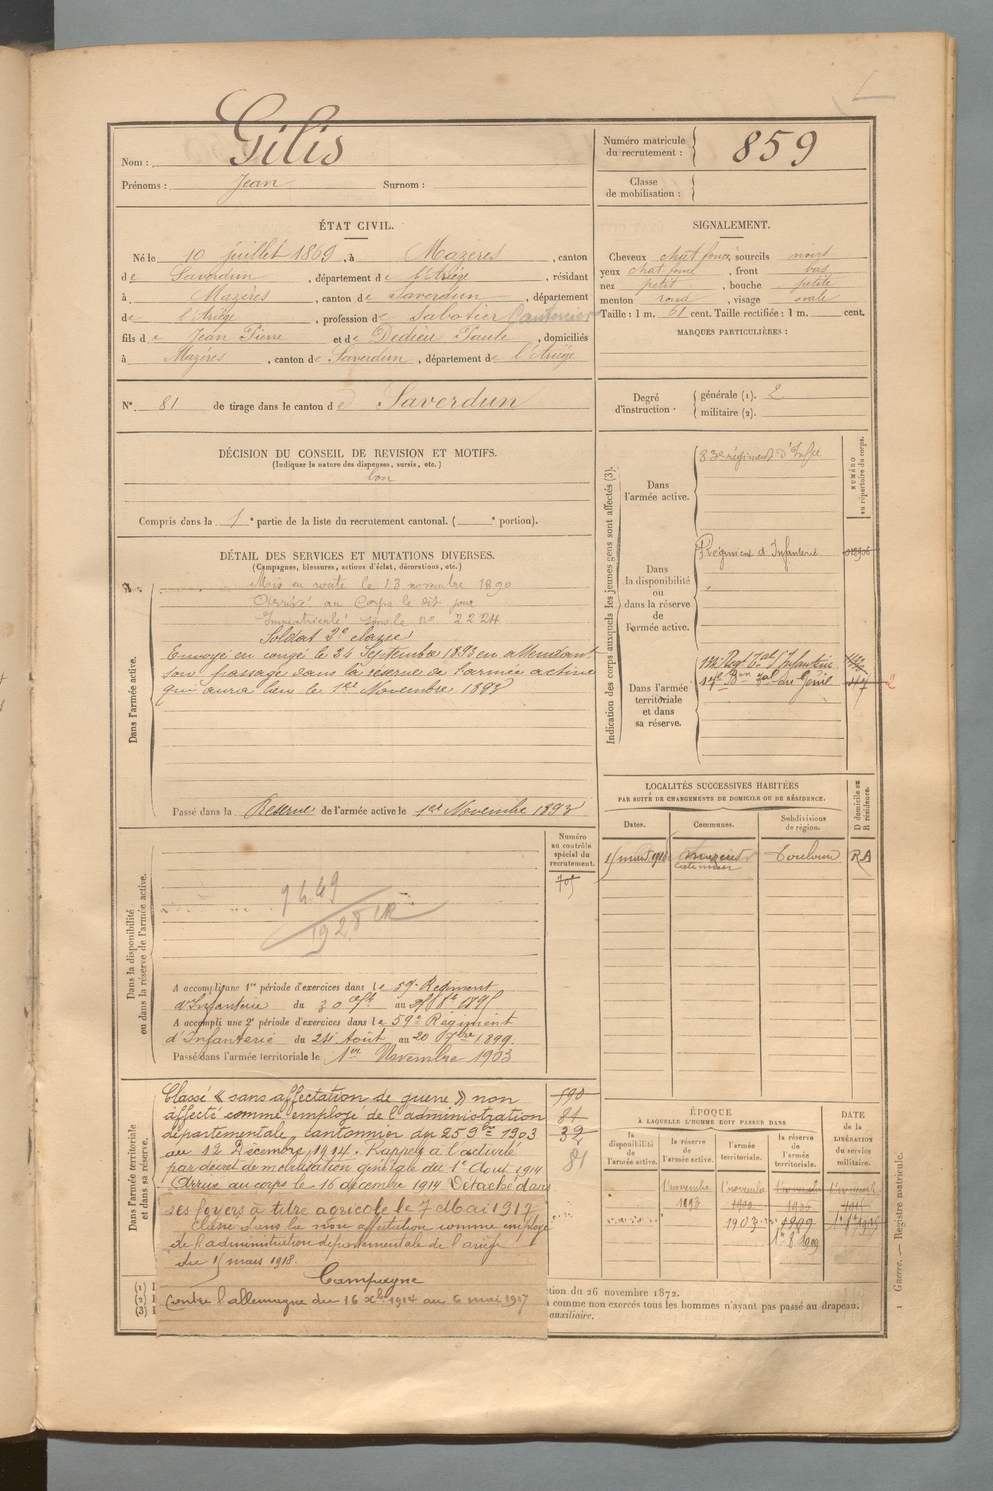 Nom : Gilis
Prénoms : Jean Surnom :
Numéro matricule du recrutement : 859
Classe de mobilisation :
ÉTAT CIVIL.
Né le 10 juillet 1869, à Mazères, canton
de Saverdun, département de l'Ariège, résidant
à Mazères, canton de Saverdun, département
de l'Ariège, profession de Sabotier Cantonnier
fils de Jean Pierre et de Dedieu Paule, domiciliés
à Mazères, canton de Saverdun, département de l'Ariège
N° 81 de tirage dans le canton de Saverdun
SIGNALEMENT.
Cheveux chat foncé, sourcils noirs
yeux chat foncé, front bas
nez petit, bouche petite
menton rond, visage ovale
Taille : 1 m. 61 cent. Taille rectifiée : 1 m. cent.
MARQUES PARTICULIÈRES :
Degré d'instruction. générale (1). 2
militaire (2).
DÉCISION DU CONSEIL DE REVISION ET MOTIFS.
(Indiquer la nature des dispenses, sursis, etc.)
bon
Compris dans la 1e partie de la liste du recrutement cantonal. ( e portion).
DÉTAIL DES SERVICES ET MUTATIONS DIVERSES.
(Campagnes, blessures, actions d'éclat, décorations, etc.)
Dans l'armée active.
Mis en route le 13 novembre 1890
Arrivé au Corps le dit jour
Immatriculé sous le n° 2224
Soldat 2e classe
Envoyé en congé le 24 Septembre 1893 en attendant
son passage dans la réserve de l'armée active
qui aura lieu le 1er Novembre 1893
Passé dans la Réserve de l'armée active le 1er Novembre 1893
Indication des corps auxquels les jeunes gens sont affectés (3).
NUMÉRO au répertoire du corps.
Dans l'armée active.
83e régiment d'Infie
Dans la disponibilité ou dans la réserve de l'armée active.
Régiment d'Infanterie
Dans l'armée territoriale et dans sa réserve.
Regt Tal d'Infanterie
Bon Tal du Génie
LOCALITÉS SUCCESSIVES HABITÉES
PAR SUITE DE CHANGEMENTS DE DOMICILE OU DE RÉSIDENCE.
Dates. Communes. Subdivisions de région. D domicile ou R résidence.
mars 1918 Toulouse RA
Dans la disponibilité ou dans la réserve de l'armée active.
Numéro au contrôle spécial du recrutement.
705
9449
1928
A accompli une 1re période d'exercices dans le 59e Régiment
d'Infanterie du 30 au 1895
A accompli une 2e période d'exercices dans le 59e Régiment
d'Infanterie du 24 Août au 20 7bre 1899
Passé dans l'armée territoriale le 1er Novembre 1903
Dans l'armée territoriale et dans sa réserve.
Classé « sans affectation de guerre » non
affecté comme employé de l'administration
départementale, cantonnier du 25 9bre 1903
au 12 Décembre 1914. Rappelé à l'activité
par décret de mobilisation générale du 1er Aout 1914
Arrivé au corps le 16 decembre 1914 Détaché dans
ses foyers à titre agricole le 7 Mai 1917
Classé dans la non affectation comme employé
de l'administration départementale de l'ariège
du mars 1918.
Campagne
Contre l'allemagne du 16 Xbre 1914 au 6 mai 1917
590
81
32
81
ÉPOQUE
À LAQUELLE L'HOMME DOIT PASSER DANS
la disponibilité de l'armée active. la réserve de l'armée active. l'armée territoriale. la réserve de l'armée territoriale.
DATE de la LIBÉRATION du service militaire.
1 novembre 1893
1 novembre 1900
1903
1909
(1)
(2)
(3)
tion du 26 novembre 1872.
comme non exercés tous les hommes n'ayant pas passé au drapeau.
auxiliaire.
1 Guerre. — Registre matricule.